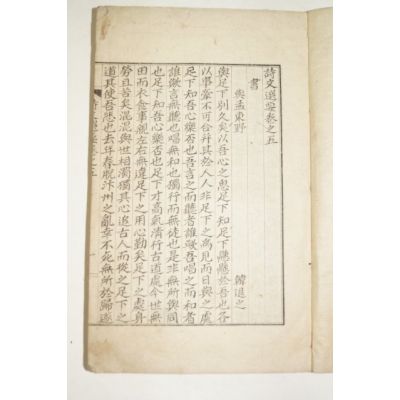 詩文選卷之五
書
與孟東野 韓退之
與足下別久矣以吾心之思足下知足下懸懸於吾也各
以事牽不可合并其於人人非足下之為見而日與之處
足下知吾心樂否也吾言之而聽者誰歟吾唱之而和者
誰歟言無聽也唱無和也獨行而無徒也是非無所與同
也足下知吾心樂否也足下才高氣清行古道處今世無
田而衣食事親左右無違足下之用心勤矣足下之處身
勞且苦矣混混與世相濁獨其心追古人而從之足下之
道其使吾悲也去年春脫汴州之亂幸不死無所於歸遂